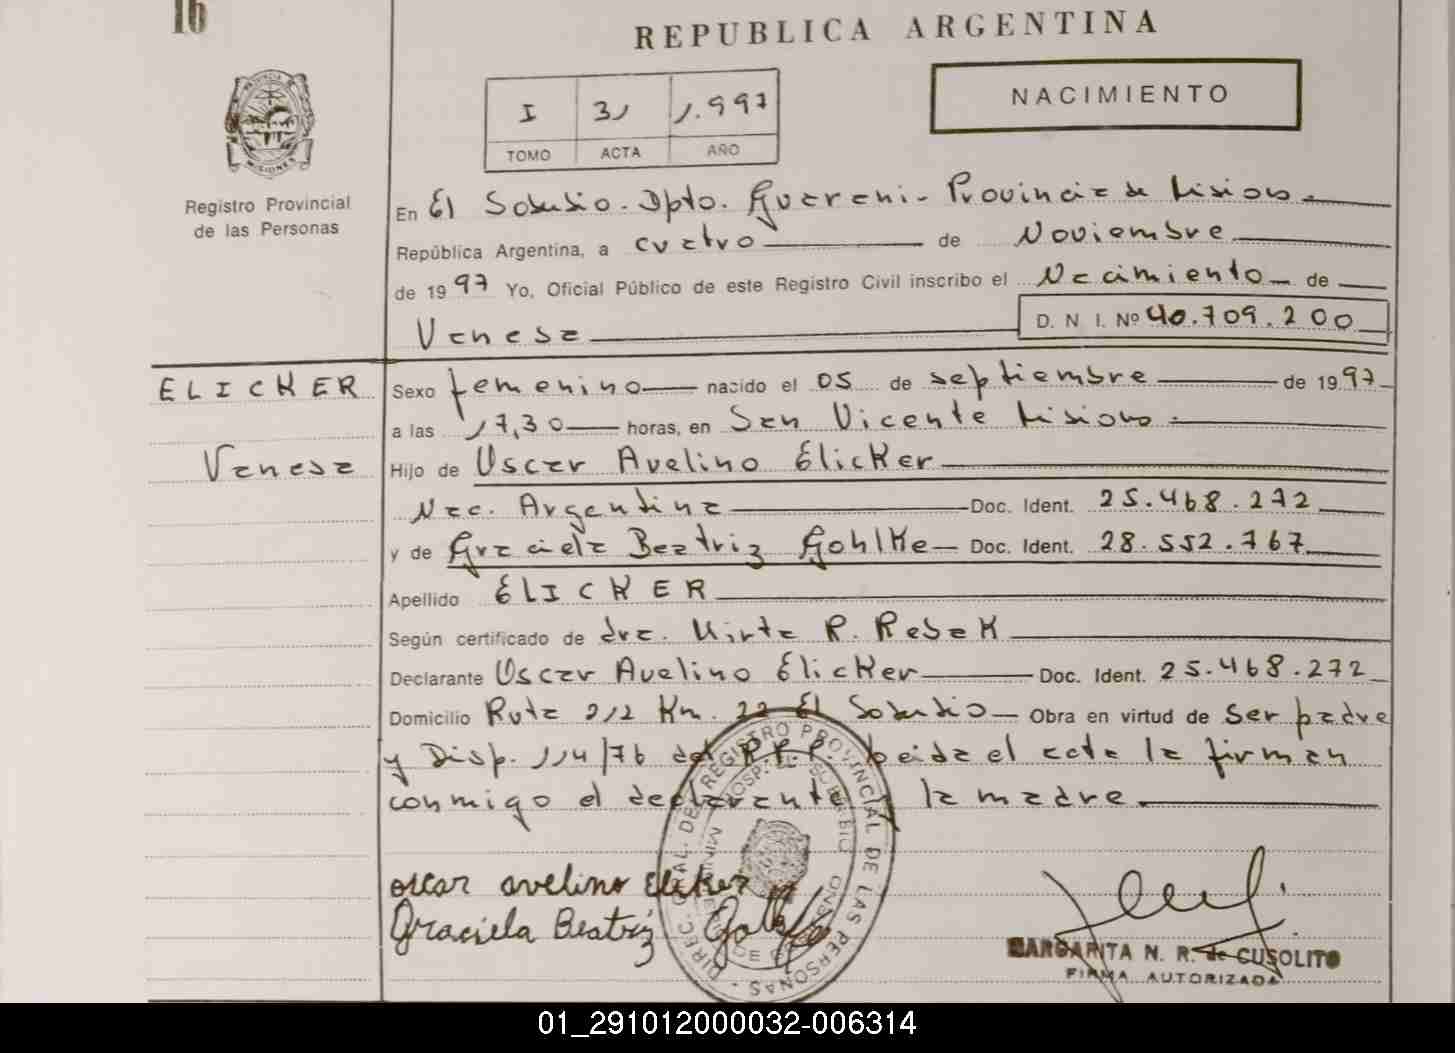 16
REPUBLICA ARGENTINA
NACIMIENTO
I 31 1.997
TOMO ACTA AÑO
PROVINCIA DE MISIONES
Registro Provincial
de las Personas
En El Soberbio. Dpto. Guarani. Provincia de Misiones.
República Argentina, a cuatro de Noviembre
de 1997 Yo, Oficial Público de este Registro Civil inscribo el Nacimiento de
Vanesa D. N. I. Nº 40.709.200
ELICKER
Vanesa
Sexo femenino nacido el 05 de septiembre de 1997
a las 17,30 horas, en San Vicente Misiones.
Hijo de Oscar Avelino Elicker
Nac. Argentina Doc. Ident. 25.468.272
y de Graciela Beatriz Gohlke Doc. Ident. 28.552.767
Apellido ELICKER
Según certificado de dra. Mirta R. Rebak
Declarante Oscar Avelino Elicker Doc. Ident. 25.468.272
Domicilio Ruta 212 Km. 22 El Soberbio Obra en virtud de ser padre
y Disp. 114/76 del R.P.P. Leida el acta la firman
conmigo el declarante y la madre.
oscar avelino Elicker
Graciela Beatriz
DIREC. GRAL. DEL REGISTRO PROVINCIAL DE LAS PERSONAS
HOSP. EL SOBERBIO
MARGARITA N. R. de CUSOLITO
FIRMA AUTORIZADA
01_291012000032-006314